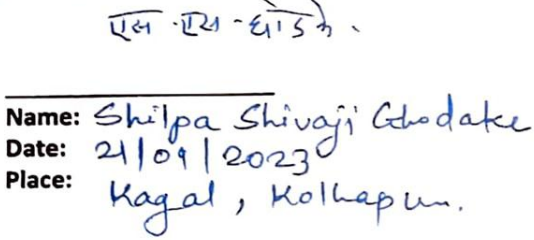 एस.एस.घोडके.
Name: Shilpa Shivaji Ghodake
Date: 21/09/2023
Place: Kagal, Kolhapur.